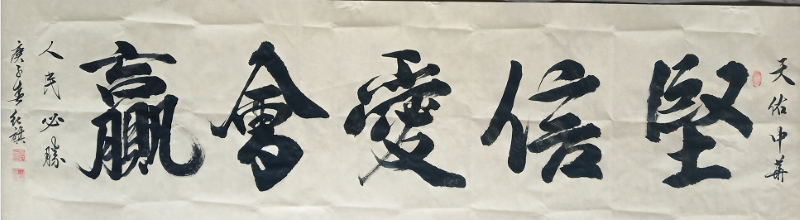 天佑中華
堅信愛會贏
人民必勝
庚子春紅旗